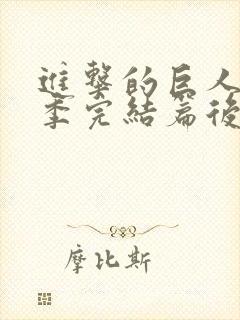 進擊的巨人
季完結篇後
摩比斯